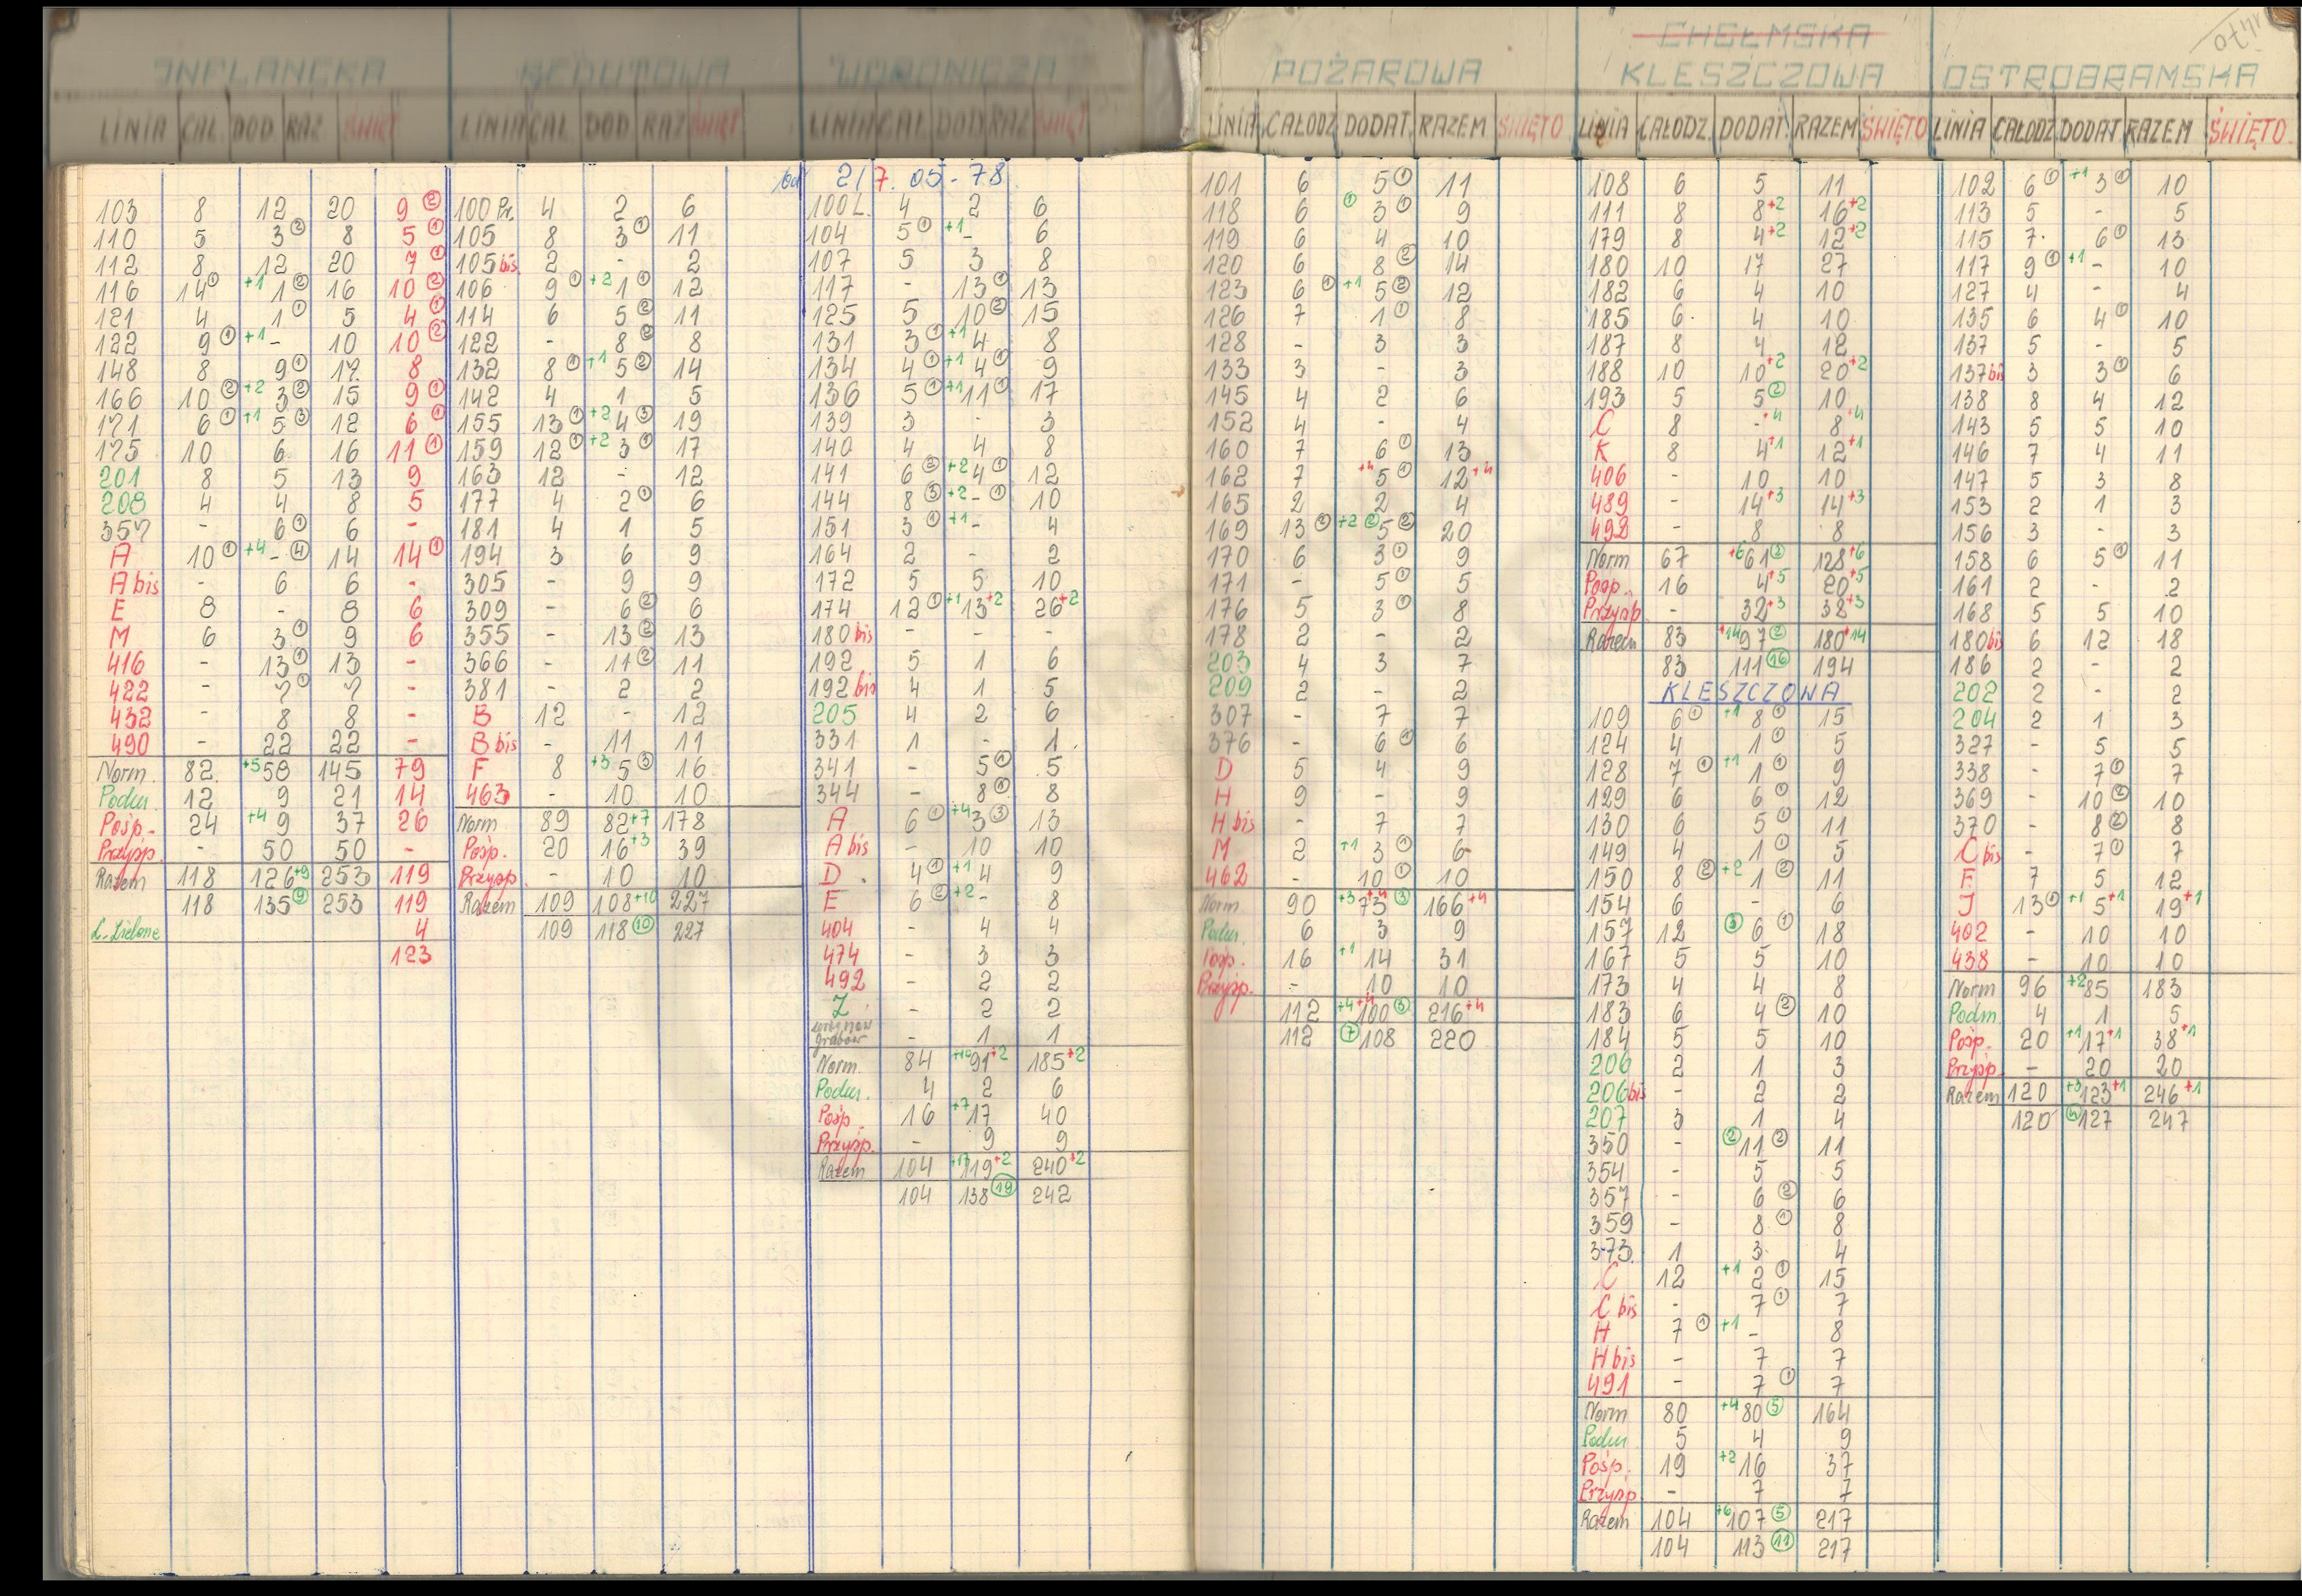 INFLANCKA
LINIA CAŁ DOD RAZ ŚWIĘT
103 8 12 20 9 ②
110 5 3② 8 5 ①
112 8 12 20 7 ①
116 14① +1 1② 16 10 ②
121 4 1① 5 4 ①
122 9① +1 - 10 10 ②
148 8 9① 17 8
166 10② +2 3② 15 9 ①
171 6① +1 5③ 12 6 ①
175 10 6 16 11 ①
201 8 5 13 9
208 4 4 8 5
357 - 6① 6 -
A 10① +4 - ④ 14 14①
A bis - 6 6 -
E 8 - 8 6
M 6 3① 9 6
416 - 13① 13 -
422 - 7① 7 -
432 - 8 8 -
490 - 22 22 -
Norm. 82 +5 58 145 79
Podm. 12 9 21 14
Pośp. 24 +4 9 37 26
Przysp. - 50 50 -
Razem 118 126+9 253 119
118 135⑨ 253 119
L. Zielone 4
123
REDUTOWA
LINIA CAŁ DOD RAZ ŚWIĘT
100 Pr. 4 2 6
105 8 3① 11
105 bis 2 - 2
106 9① +2 1① 12
114 6 5② 11
122 - 8② 8
132 8① +1 5② 14
142 4 1 5
155 13① +2 4③ 19
159 12① +2 3① 17
163 12 - 12
177 4 2① 6
181 4 1 5
194 3 6 9
305 - 9 9
309 - 6② 6
355 - 13② 13
366 - 11② 11
381 - 2 2
B 12 - 12
B bis - 11 11
F 8 +3 5③ 16
463 - 10 10
Norm 89 82+7 178
Pośp. 20 16+3 39
Przysp. - 10 10
Razem 109 108+10 227
109 118⑩ 227
WORONICZA
LINIA CAŁ DOD RAZ ŚWIĘT
od 2/7. 05 - 78
100 L. 4 2 6
104 5① +1 - 6
107 5 3 8
117 - 13① 13
125 5 10② 15
131 3① +1 4 8
134 4① +1 4① 9
136 5① +1 11① 17
139 3 - 3
140 4 4 8
141 6② +2 4① 12
144 8③ +2 - ① 10
151 3① +1 - 4
164 2 - 2
172 5 5 10
174 12① +1 13+2 26+2
180 bis - - -
192 5 1 6
192 bis 4 1 5
205 4 2 6
331 1 - 1
341 - 5① 5
344 - 8① 8
A 6① +4 3③ 13
A bis - 10 10
D 4① +1 4 9
E 6② +2 - 8
404 - 4 4
474 - 3 3
492 - 2 2
Z - 2 2
- 1 1
Norm. 84 +10 91+2 185+2
Podm. 4 2 6
Pośp. 16 +7 17 40
Przysp. - 9 9
Razem 104 +17 119+2 240+2
104 138⑲ 242
POŻAROWA
LINIA CAŁODZ DODAT. RAZEM ŚWIĘTO
101 6 5① 11
118 6 ① 3① 9
119 6 4 10
120 6 8② 14
123 6① +1 5② 12
126 7 1① 8
128 - 3 3
133 3 - 3
145 4 2 6
152 4 - 4
160 7 6① 13
162 7 +4 5① 12+4
165 2 2 4
169 13② +2 ② 5② 20
170 6 3① 9
171 - 5① 5
176 5 3① 8
178 2 - 2
203 4 3 7
209 2 - 2
307 - 7 7
376 - 6① 6
D 5 4 9
H 9 - 9
H bis - 7 7
M 2 +1 3① 6
462 - 10① 10
Norm 90 +3 73+4 ③ 166+4
Podm. 6 3 9
Pośp. 16 +1 14 31
Przysp. - 10 10
112 +4+4 100③ 216+4
112 ⑦ 108 220
CHEŁMSKA
KLESZCZOWA
LINIA CAŁODZ. DODAT. RAZEM ŚWIĘTO
108 6 5 11
111 8 8+2 16+2
179 8 4+2 12+2
180 10 17 27
182 6 4 10
185 6 4 10
187 8 4 12
188 10 10+2 20+2
193 5 5② 10
C 8 -+4 8+4
K 8 4+1 12+1
406 - 10 10
489 - 14+3 14+3
492 - 8 8
Norm 67 +6 61② 128+6
Pośp. 16 4+5 20+5
Przysp. - 32+3 38+3
Razem 83 +14 97② 180+14
83 111⑯ 194
KLESZCZOWA
109 6① +1 8① 15
124 4 1① 5
128 7① +1 1① 9
129 6 6① 12
130 6 5① 11
149 4 1① 5
150 8② +2 1② 11
154 6 - 6
157 12 ③ 6① 18
167 5 5 10
173 4 4 8
183 6 4② 10
184 5 5 10
206 2 1 3
206bis - 2 2
207 3 1 4
350 - ② 11② 11
354 - 5 5
357 - 6② 6
359 - 8① 8
373 1 3 4
C 12 +1 2① 15
C bis - 7① 7
H 7① +1 - 8
H bis - 7 7
491 - 7① 7
Norm 80 +4 80⑤ 164
Podm 5 4 9
Pośp. 19 +2 16 37
Przysp - 7 7
Razem 104 +6 107⑤ 217
104 113⑪ 217
OSTROBRAMSKA
LINIA CAŁODZ DODAT RAZEM ŚWIĘTO.
102 6① +1 3① 10
113 5 - 5
115 7 6① 13
117 9① +1 - 10
127 4 - 4
135 6 4① 10
137 5 - 5
137bis 3 3① 6
138 8 4 12
143 5 5 10
146 7 4 11
147 5 3 8
153 2 1 3
156 3 - 3
158 6 5① 11
161 2 - 2
168 5 5 10
180bis 6 12 18
186 2 - 2
202 2 - 2
204 2 1 3
327 - 5 5
338 - 7① 7
369 - 10② 10
370 - 8② 8
C bis - 7① 7
F 7 5 12
J 13① +1 5+1 19+1
402 - 10 10
438 - 10 10
Norm 96 +2 85 183
Podm. 4 1 5
Pośp. 20 +1 17+1 38+1
Przysp. - 20 20
Razem 120 +3 123+1 246+1
120 ④ 127 247